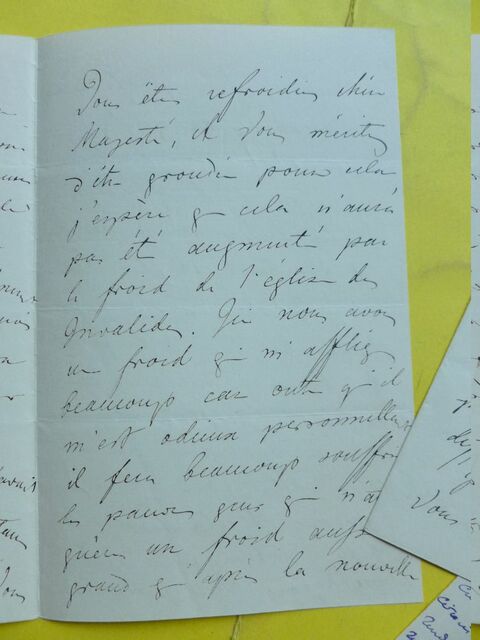 Vous êtes refroidie chère
Majesté, et Vous méritez
d'être grondée pour cela
j'espère q cela n'aura
pas été augmenté par
le froid de l'église des
Invalides. Ici nous avons
un froid qi m'afflige
beaucoup car outre qu'il
m'est odieux personnellement
il fera beaucoup souffrir
les pauvres gens qi n'a
guère un froid aussi
grand q' après la nouvelle
Vous